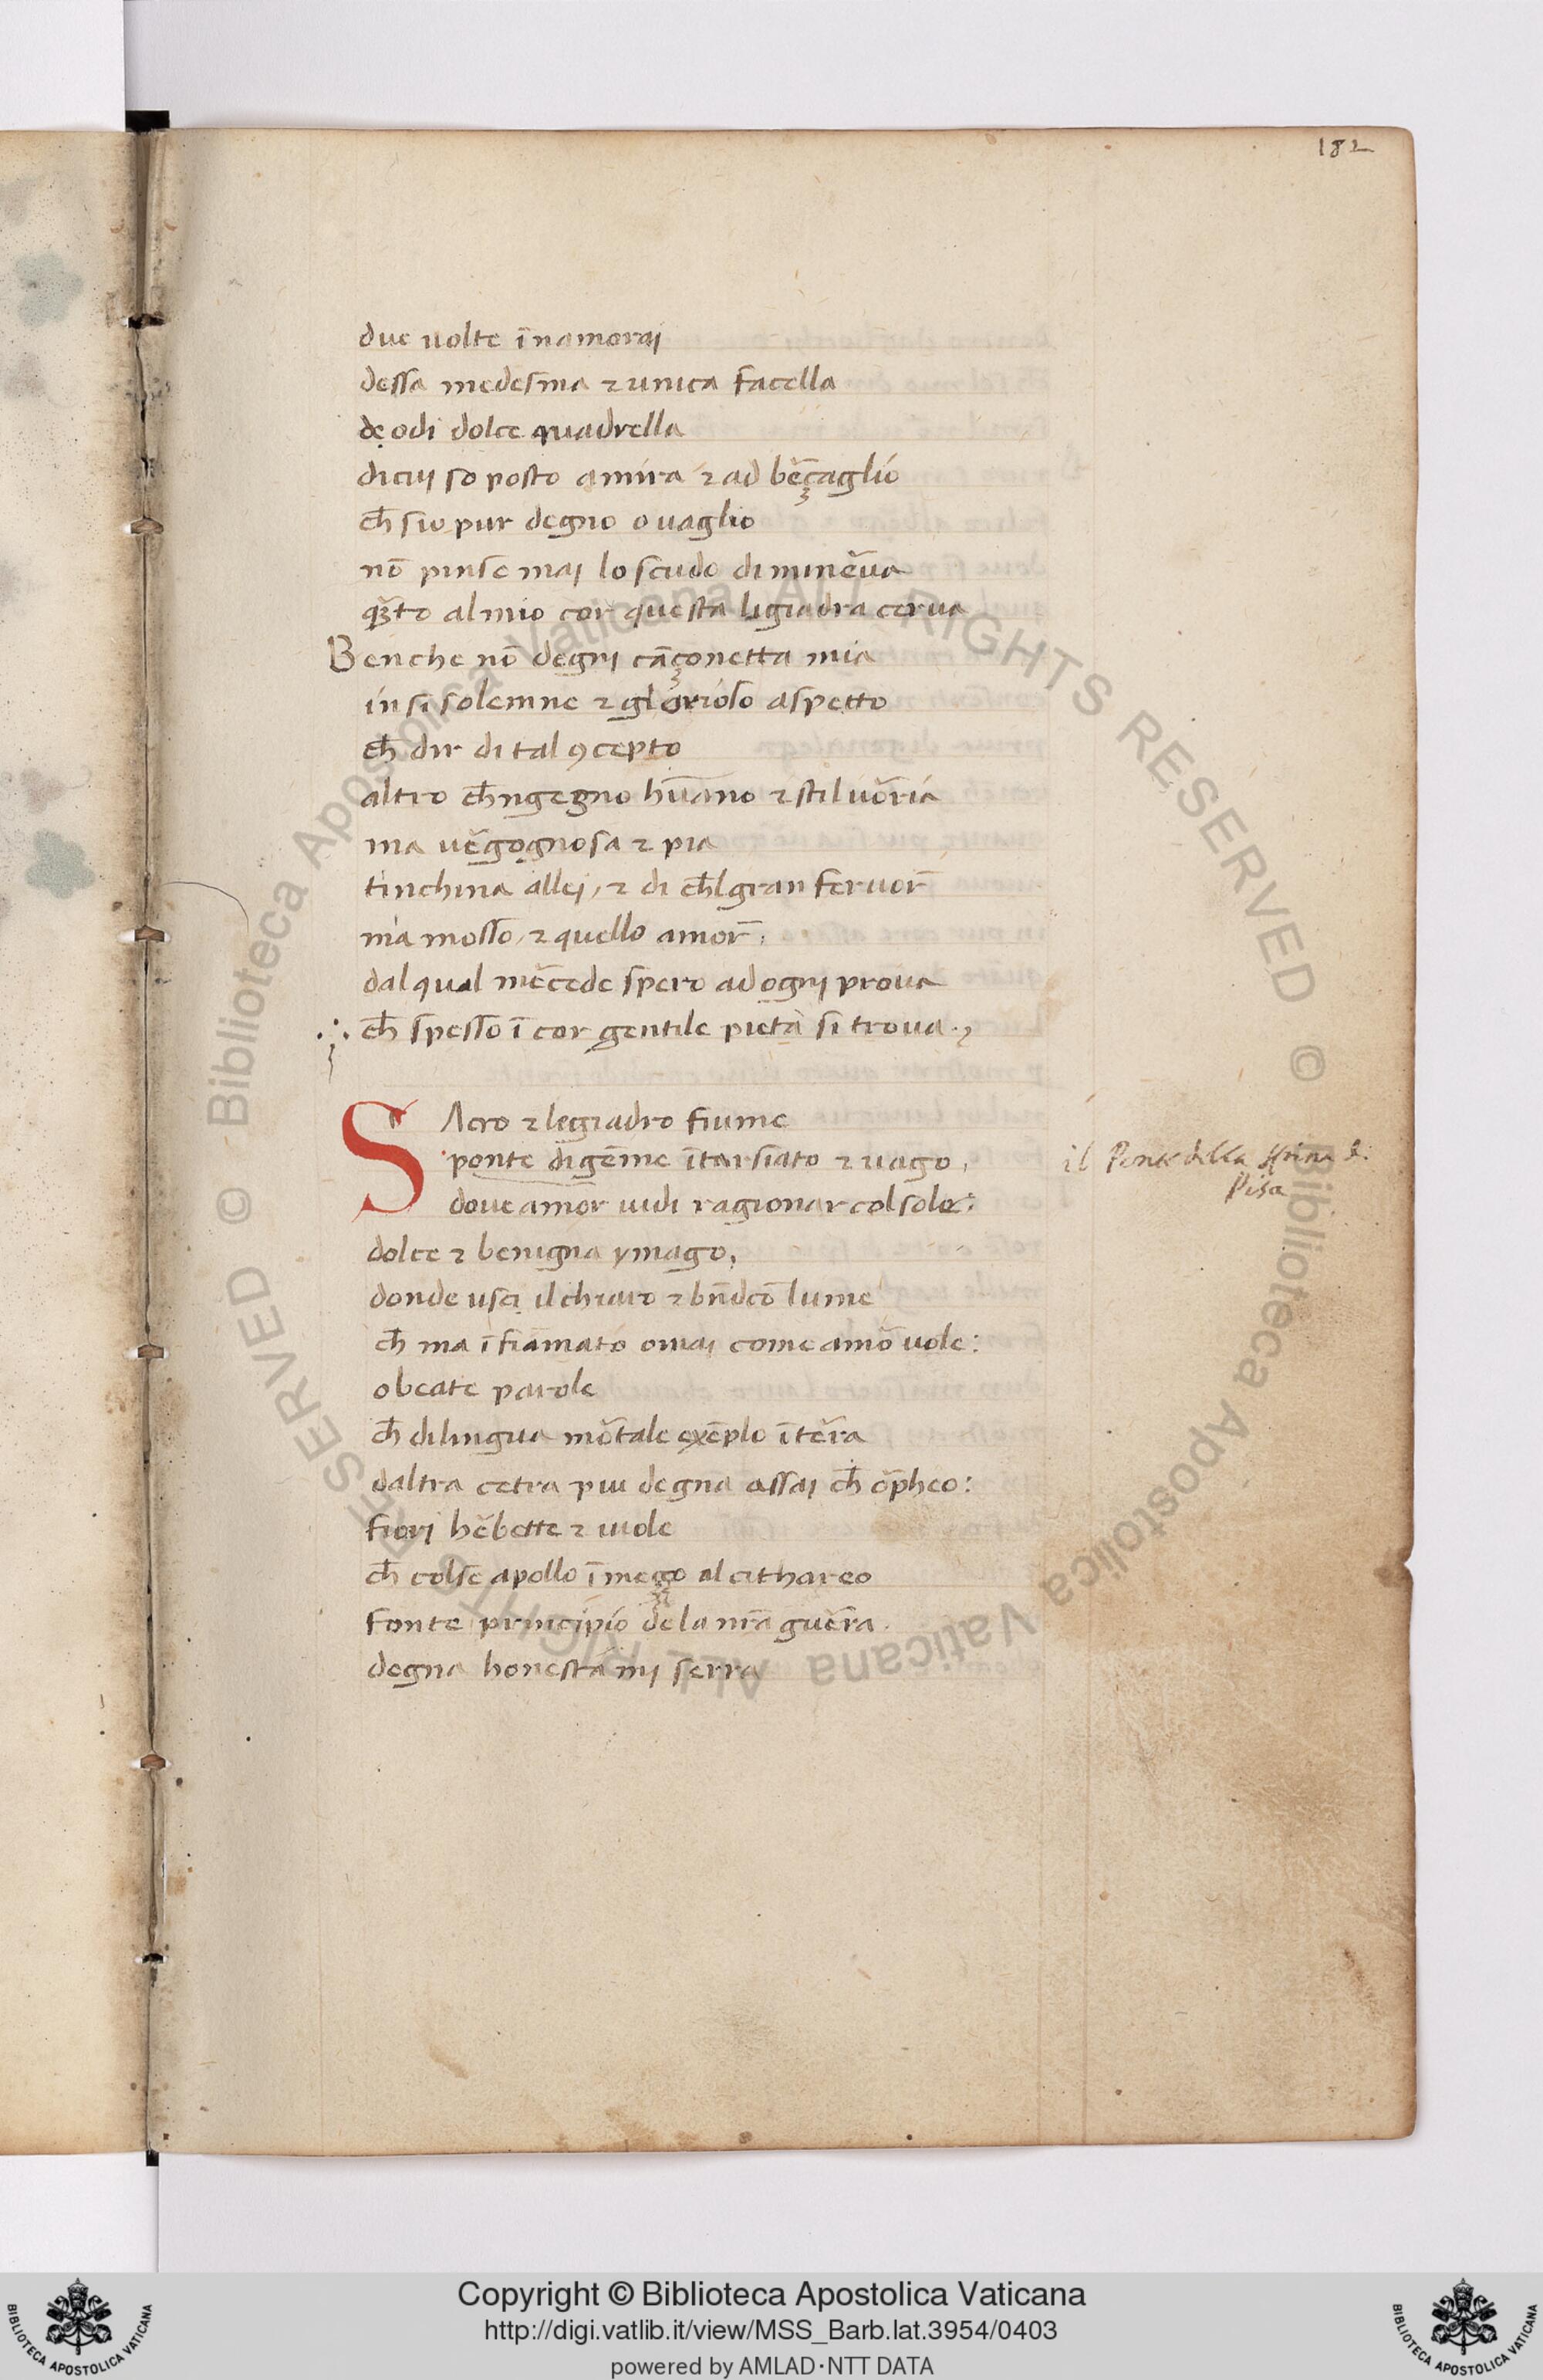 182
due uolte īnamorai
dessa medesma ⁊ unica facella
de odi dolce quadrella
dicuj so posto amira ⁊ ad bēçaglio
ch̄ sio pur degno o uaglio
nō pinse maj lo scudo di minēua
qᷓto almio cor questa ligiadra cerua
Benche nō degni cāçonetta mia
in si solemne ⁊ glorioso aspetto
ch̄ dir di tal ꝯcepto
altro ch̄ngegno hūano ⁊ stil uōria
ma uēgognosa ⁊ pia
tinchina allej, ⁊ di ch̄lgran feruor̄
ma mosso, ⁊ quello amor̄.
dalqual mēcede spero ad ognj proua
ch̄ spesso ī cor gentile pieta si troua.,
SAcro ⁊ legiadro fiume
ponte digēme ītarsiato ⁊ uago,
doue amor uidi ragionar col sole:
dolce ⁊ benigna ymago,
donde usci il chiaro ⁊ bn̄dcō lume
ch̄ ma īfiāmato omai come amō uole:
o beate parole
ch̄ dilingua mōtale exēplo ītēra
daltra cetra piu degna assai ch̄ ōpheo:
fiori hēbette ⁊ uiole
ch̄ colse apollo ī meço al cithareo
fonte principio de la nr̄a guēra.
degna honesta mj serra
il Ponte della spina di
Pisa
Copyright © Biblioteca Apostolica Vaticana
http://digi.vatlib.it/view/MSS_Barb.lat.3954/0403
powered by AMLAD·NTT DATA
BIBLIOTECA APOSTOLICA VATICANA
BIBLIOTECA APOSTOLICA VATICANA
© Biblioteca Apostolica Vaticana ALL RIGHTS RESERVED © Biblioteca Apostolica Vaticana ALL RIGHTS RESERVED